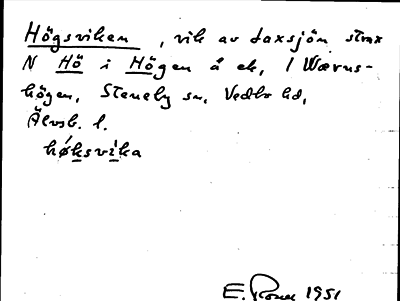 Högsviken, vik av Laxsjön strax
N Hö i Högen å ek, 1 Wærns-
högen, Steneby sn, Vedbo hd,
Älvsb. l.
høksvika
E. 1951